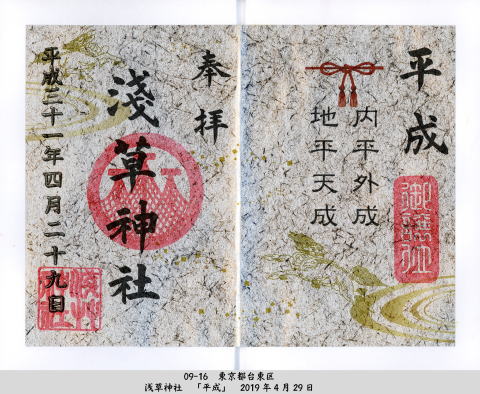 平成
内平外成
地平天成
奉拝
淺草神社
平成三十一年四月二十九日
09-16　東京都台東区
浅草神社　「平成」　2019年4月29日